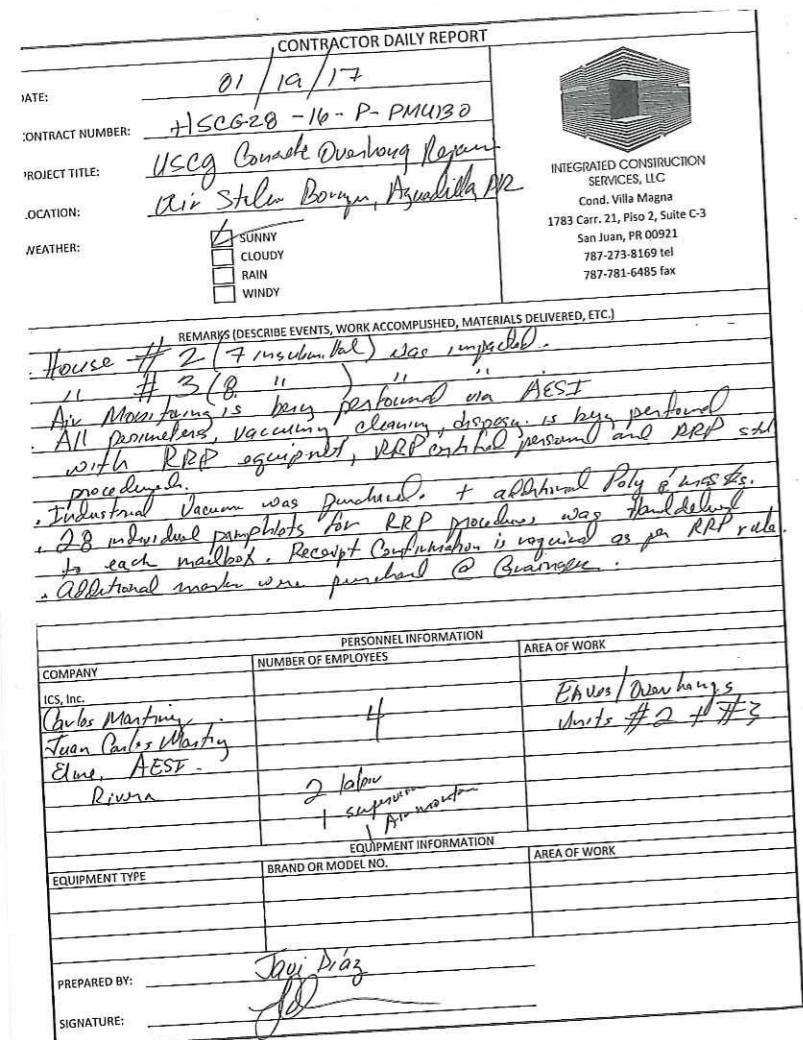 CONTRACTOR DAILY REPORT
DATE: 01/19/17
CONTRACT NUMBER: HSCG28-16-P-PMU130
PROJECT TITLE: USCG Concrete Overhang Repair
LOCATION: Air Borinquen, Aguadilla PR
WEATHER:
SUNNY
CLOUDY
RAIN
WINDY
INTEGRATED CONSTRUCTION
SERVICES, LLC
Cond. Villa Magna
1783 Carr. 21, Piso 2, Suite C-3
San Juan, PR 00921
787-273-8169 tel
787-781-6485 fax
REMARKS (DESCRIBE EVENTS, WORK ACCOMPLISHED, MATERIALS DELIVERED, ETC.)
. House # 2 (7 ) was impacted.
" # 3 (8 " ) " "
. Air Monitoring is being performed via AESI
. All perimeters, vacuuming cleaning, disposing is being performed
with RRP equipment, RRP certified personnel and RRP
procedures.
. Industrial Vacuum was purchased. + additional Poly & masks.
. 28 individual pamphlets for RRP procedures was
to each mailbox. Receipt Confirmation is required as per RRP rule.
. Additional were purchased @ Grainger.
PERSONNEL INFORMATION
COMPANY NUMBER OF EMPLOYEES AREA OF WORK
ICS, Inc.
Carlos Martinez 4 Eaves/Overhangs
Juan Carlos Units #2 + #3
AESI.
Rivera 2 labor
1
1
EQUIPMENT INFORMATION
EQUIPMENT TYPE BRAND OR MODEL NO. AREA OF WORK
PREPARED BY: Javi Díaz
SIGNATURE: